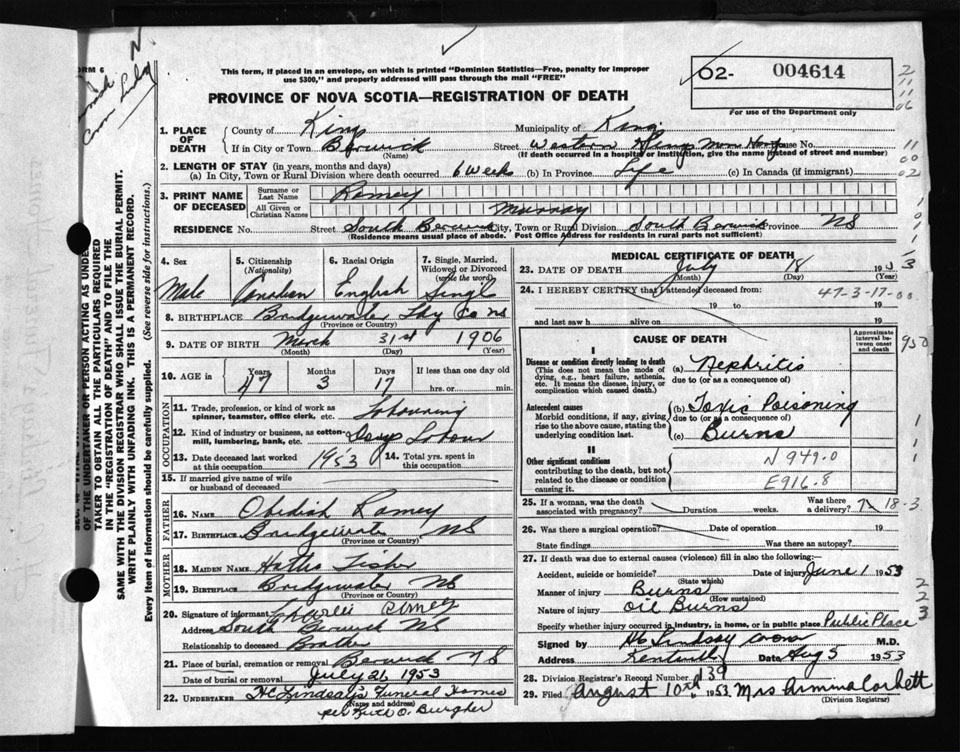 This form, if placed in an envelope, on which is printed "Dominion Statistics—Free, penalty for improper
use $300," and properly addressed will pass through the mail "FREE"
PROVINCE OF NOVA SCOTIA—REGISTRATION OF DEATH
02- 004614
For use of the Department only
1. PLACE OF DEATH
County of Kings Municipality of Kings
If in City or Town Berwick (Name) Street Western Kings Mem House No.
(If death occurred in a hospital or institution, give the name instead of street and number)
2. LENGTH OF STAY (in years, months and days)
(a) In City, Town or Rural Division where death occurred 6 weeks (b) In Province Life (c) In Canada (if immigrant)
3. PRINT NAME OF DECEASED
Surname or Last Name Ramey
All Given or Christian Names Murray
RESIDENCE No. Street South Berwick City, Town or Rural Division South Berwick Province NS
(Residence means usual place of abode. Post Office Address for residents in rural parts not sufficient)
4. Sex Male
5. Citizenship (Nationality) Canadian
6. Racial Origin English
7. Single, Married, Widowed or Divorced (write the word) Single
8. BIRTHPLACE Bridgewater Co NS
(Province or Country)
9. DATE OF BIRTH March 31st 1906
(Month) (Day) (Year)
10. AGE in Years 47 Months 3 Days 17 If less than one day old hrs. or min.
OCCUPATION
11. Trade, profession, or kind of work as spinner, teamster, office clerk, etc. Labouring
12. Kind of industry or business, as cotton-mill, lumbering, bank, etc. Days Labour
13. Date deceased last worked at this occupation 1953 14. Total yrs. spent in this occupation
15. If married give name of wife or husband of deceased
FATHER
16. NAME Obediah Ramey
17. BIRTHPLACE Bridgewater NS
(Province or Country)
MOTHER
18. MAIDEN NAME Hattie Fisher
19. BIRTHPLACE Bridgewater NS
(Province or Country)
20. Signature of informant Charlie Ramey
Address South Berwick NS
Relationship to deceased Brother
21. Place of burial, cremation or removal Berwick NS
Date of burial or removal July 21, 1953
22. UNDERTAKER H C Lindsay's Funeral Homes
(Name and address)
per Ruth O. Burgher
MEDICAL CERTIFICATE OF DEATH
23. DATE OF DEATH July 18 1953
(Month) (Day) (Year)
24. I HEREBY CERTIFY that I attended deceased from: 47-3-17-00
19 to 19
and last saw h alive on 19
CAUSE OF DEATH
Approximate interval between onset and death
I
Disease or condition directly leading to death
(This does not mean the mode of dying, e.g., heart failure, asthenia, etc. It means the disease, injury, or complication which caused death.)
(a) Nephritis
due to (or as a consequence of)
Antecedent causes
Morbid conditions, if any, giving rise to the above cause, stating the underlying condition last.
(b) Toxic Poisoning
due to (or as a consequence of)
(c) Burns
II
Other significant conditions
contributing to the death, but not related to the disease or condition causing it.
N 949.0
E916.8
25. If a woman, was the death associated with pregnancy? Duration weeks. Was there a delivery?
26. Was there a surgical operation? Date of operation 19
State findings Was there an autopsy?
27. If death was due to external causes (violence) fill in also the following:
Accident, suicide or homicide? (State which) Date of injury June 1 1953
Manner of injury Burns
(How sustained)
Nature of injury Oil Burns
Specify whether injury occurred in industry, in home, or in public place Public Place
Signed by H C Lindsay Coroner M.D.
Address Kentville Date Aug 5 1953
28. Division Registrar's Record Number 139
29. Filed August 10th 1953 Mrs Armina Corbett
(Division Registrar)
FORM 6
OF THE UNDERTAKER OR PERSON ACTING AS UNDER-
TAKER TO OBTAIN ALL THE PARTICULARS REQUIRED
IN THE "REGISTRATION OF DEATH" AND TO FILE THE
SAME WITH THE DIVISION REGISTRAR WHO SHALL ISSUE THE BURIAL PERMIT.
WRITE PLAINLY WITH UNFADING INK. THIS IS A PERMANENT RECORD.
Every item of information should be carefully supplied. (See reverse side for instructions.)